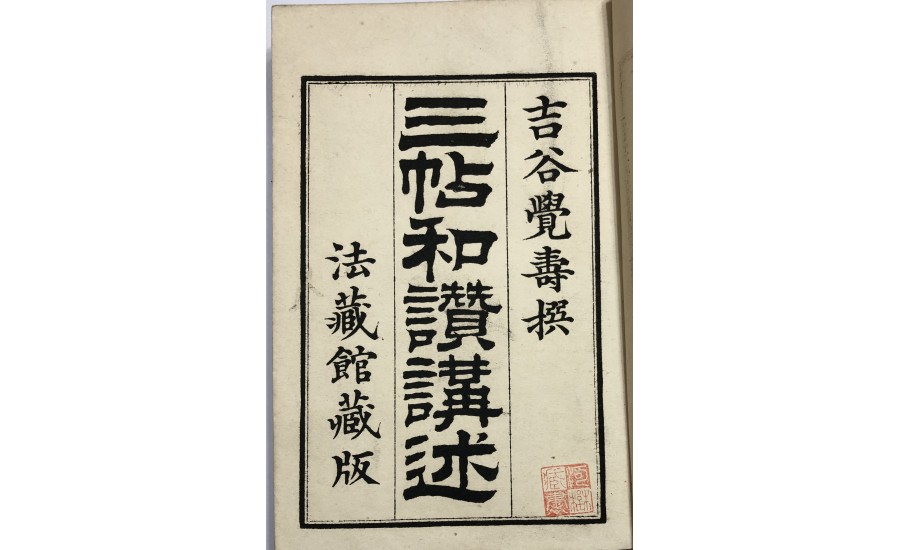 吉谷覺壽撰
三帖和讚講述
法藏館藏版